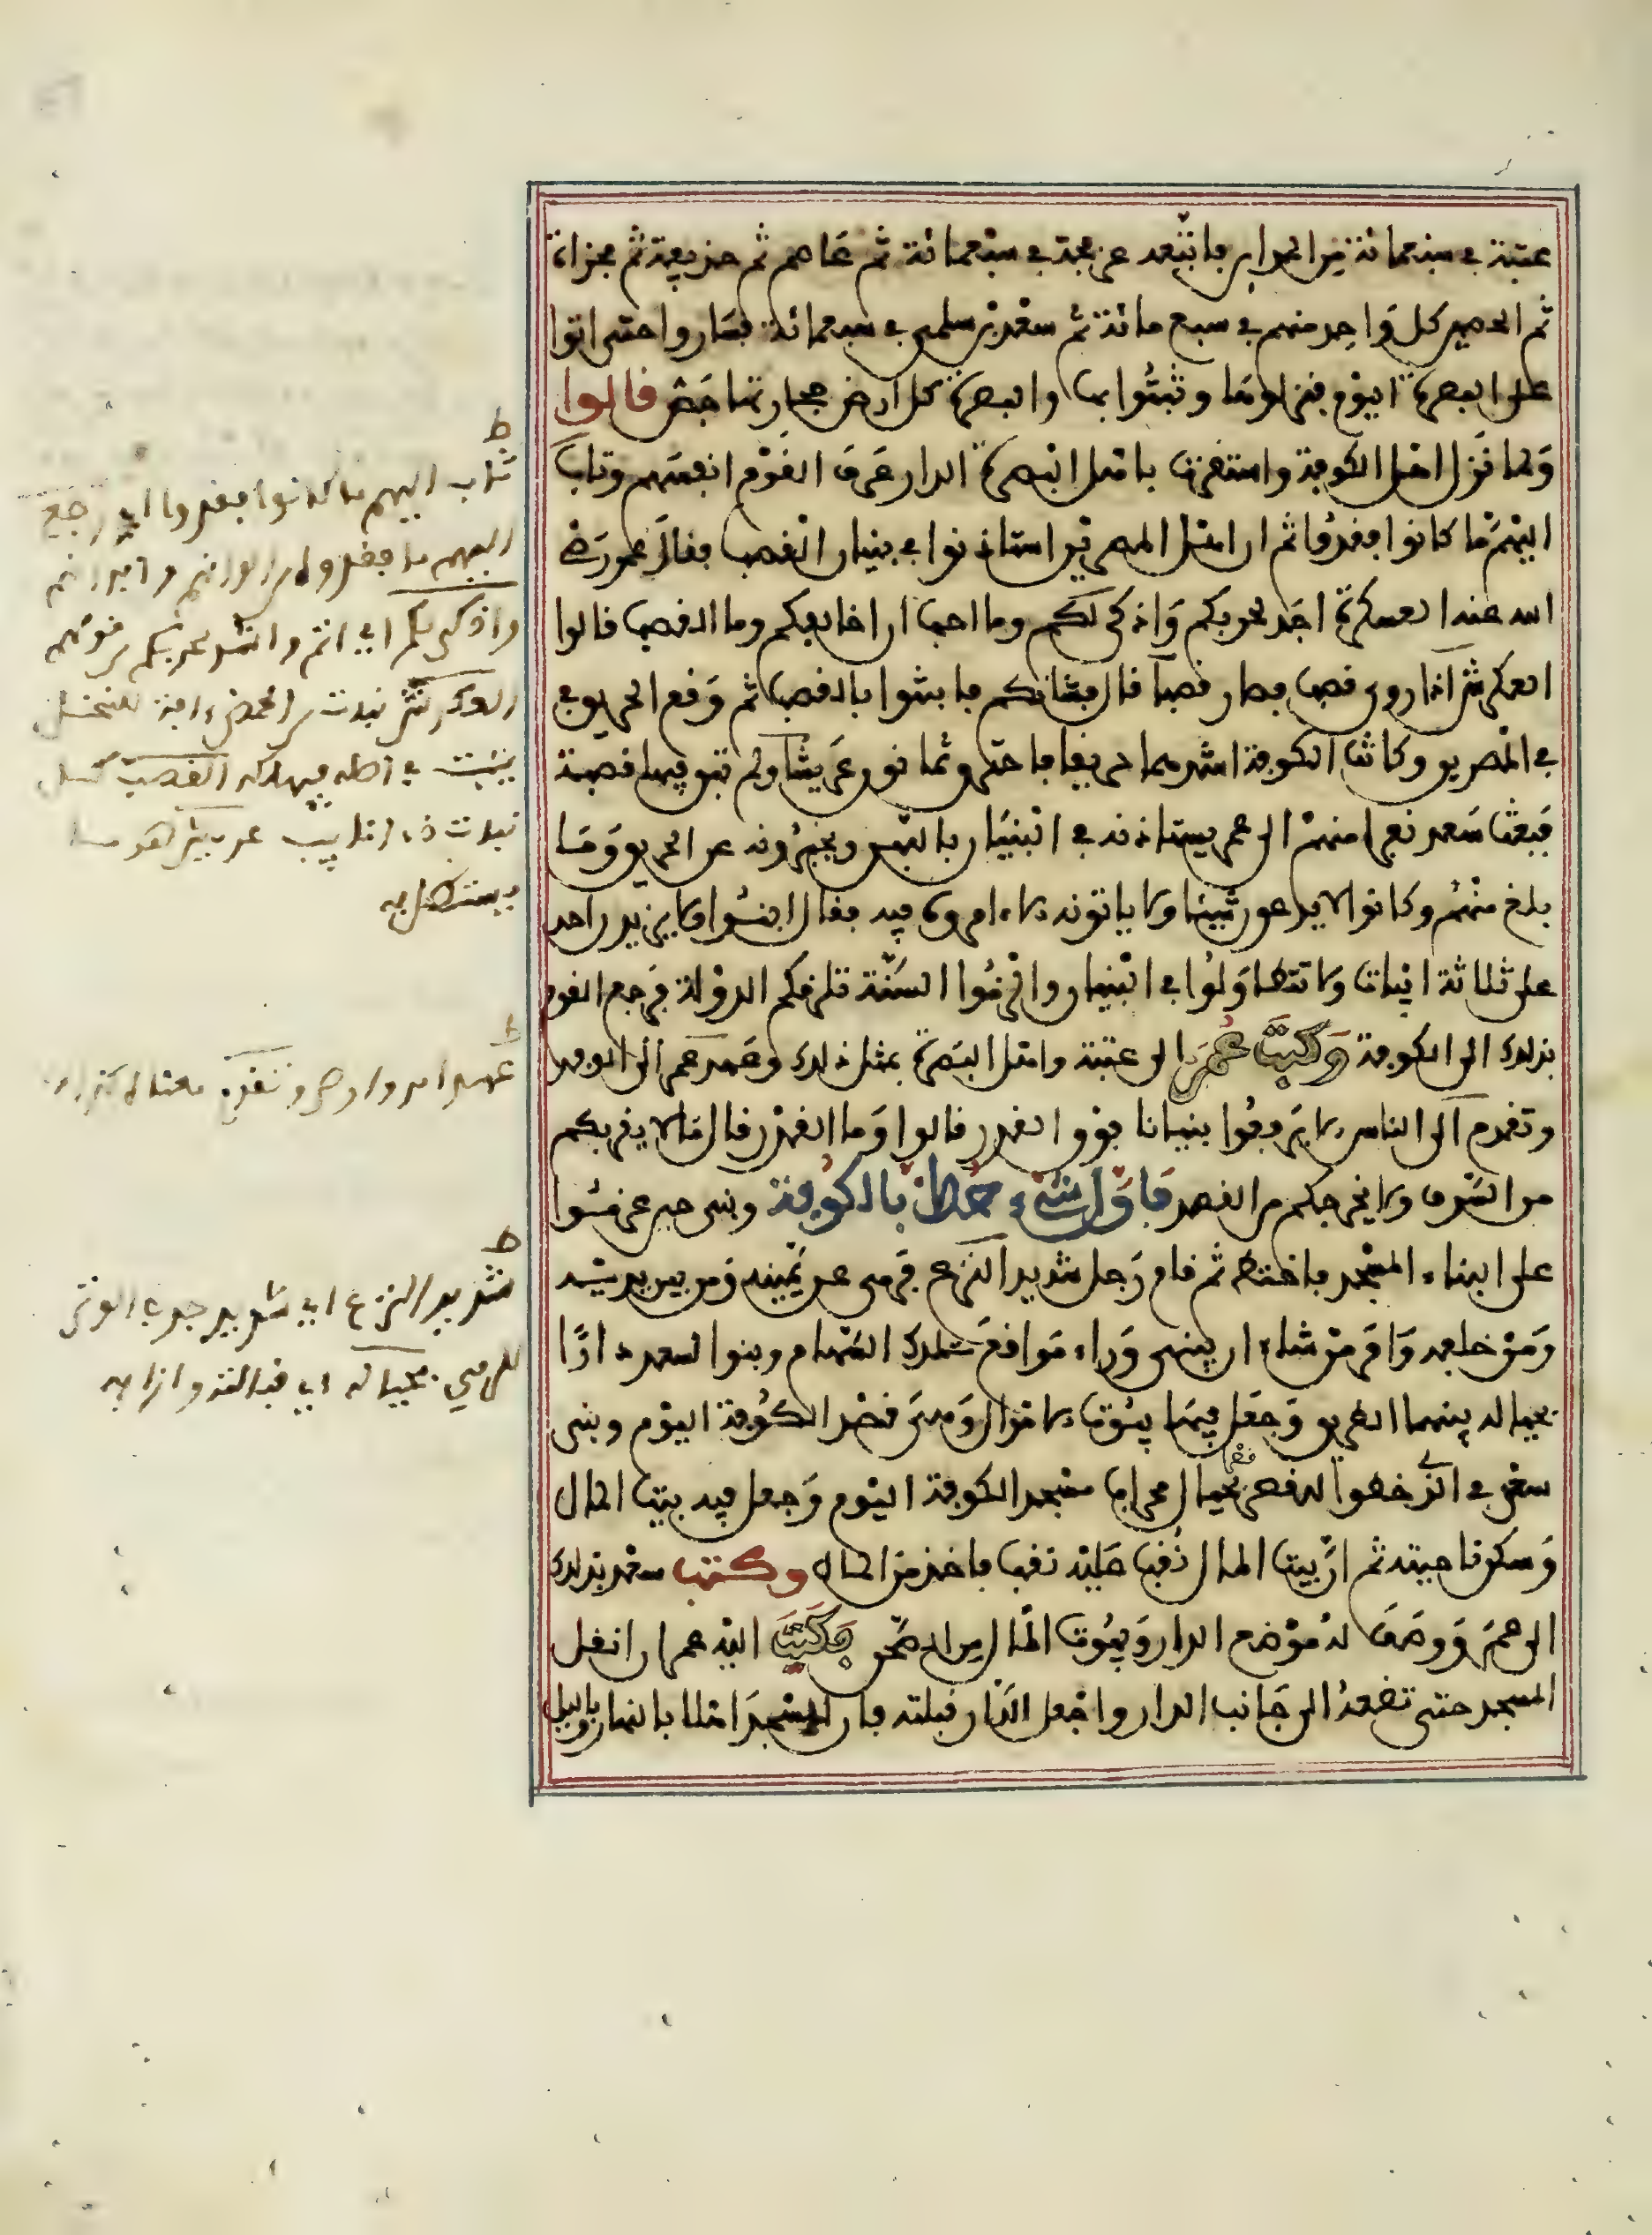 عتبة في سبعمائة من المدائن فاتبعه عرفجة في سبعمائة ثم عاصم ثم حذيفة ثم مجزاة
ثم الحصين كل واحد منهم في سبع مائة ثم سعد بن سلمى في سبعمائة فساروا حتى اتوا
على البصرة اليوم فنزلوها وثبتوا بها والبصرة كل ارض حجارتها جص قالوا
ولما نزل اهل الكوفة واستقرت باهل البصرة الدار عرف القوم انفسهم وثاب
اليهم ما كانوا فقدوا ثم ان اهل المصرين استاذنوا في بنيان القصب فقال عمر رضى
الله عنه العسكرة اجد لحربكم واذكى لكم وما احب ان اخالفكم وما القصب قالوا
العكرش اذا روى قصب فصار قصبا قال فشانكم فابتنوا بالقصب ثم وقع الحريق في
في المصرين وكانت الكوفة اشدهما حريقا فاحترق ثمانون عريشا ولم تبق فيها قصبة
فبعث سعد نفرا منهم الى عمر يستاذنه في البنيان باللبن ويخبرونه عن الحريق وما
بلغ منهم وكانوا لا يدعون شيئا ولا ياتونه الا وامروه فيه فقال ابنوا ولا يزيدن احد
على ثلاثة ابيات ولا تتطاولوا في البنيان والزموا السنة تلزمكم الدولة فرجع القوم
بذلك الى الكوفة وكتب عمر الى عتبة واهل البصرة بمثل ذلك وعهد عمر الى الوفد
وتقدم الى الناس الا يرفعوا بنيانا فوق القدر قالوا وما القدر قال ما لا يقربكم
من السرف ولا يخرجكم من القصد فاول شىء خط بالكوفة وبنى حين عزموا
على البناء المسجد فاختط ثم قام رجل شديد النزع فرمى عن يمينه ومن بين يديه
ومن خلفه وامر من شاء ان يبنى وراء مواقع تلك السهام وبنوا لسعد دارا
بحياله بينهما طريق وجعل فيها بيوت الاموال وهى قصر الكوفة اليوم وبنى
سعد في الذي خطوا للقصر قصرا بحيال محراب مسجد الكوفة اليوم وجعل فيه بيت المال
وسكن ناحيته ثم ان بيت المال نقب عليه نقب فاخذ من المال وكتب سعد بذلك
الى عمر ووصف له موضع الدار وبيوت المال من الصحن فكتب اليه عمر ان انقل
المسجد حتى تضعه الى جانب الدار واجعل الدار قبلته فان للمسجد اهلا بالنهار وبالليل
ط
ثاب اليهم ما كانوا فقدوا اي رجع
اليهم ما فقدوا من الوانهم وابدانهم
واذكى لكم اي اتم واشد لحربكم من قولهم
العكرش نبات من الحمض افة للنخل
ينبت في اصله فيهلكه القصب كل
نبات ذي انابيب
ط
عهد امر واوصى وتقدم
ط
شديد النزع اي شديد جذب الوتر
للرمي بحياله اي قبالته وازائه